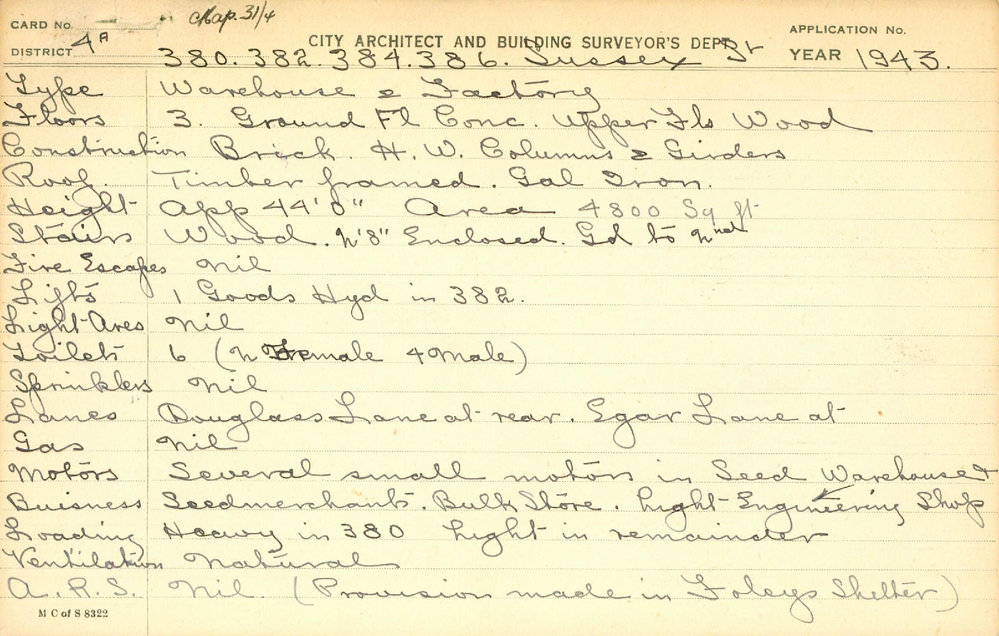 CARD No. Map. 31/4 APPLICATION No.
DISTRICT 4A CITY ARCHITECT AND BUILDING SURVEYOR'S DEPT. YEAR 1943.
380. 382. 384. 386. Sussex St
Type Warehouse & Factory
Floors 3. Ground Fl Conc. Upper Fls Wood
Construction Brick. H. W. Columns & Girders
Roof. Timber framed. Gal Iron.
Height App 44'0" Area 4800 Sq ft
Stairs Wood. 2'8" Enclosed. Gd to 2nd
Fire Escapes Nil
Lifts 1 Goods Hyd in 382.
Light Ares Nil
Toilets 6 (2 Female 4 Male)
Sprinklers Nil
Lanes Douglass Lane at rear. Egar Lane at
Gas Nil
Motors Several small motors in Seed Warehouse &
Buisness Seedmerchants. Bulk Store. Light Engineering Shop
Loading Heavy in 380 Light in remainder
Ventilation Natural
A. R. S. Nil. (Provision made in Foleys Shelter)
M C of S 8322